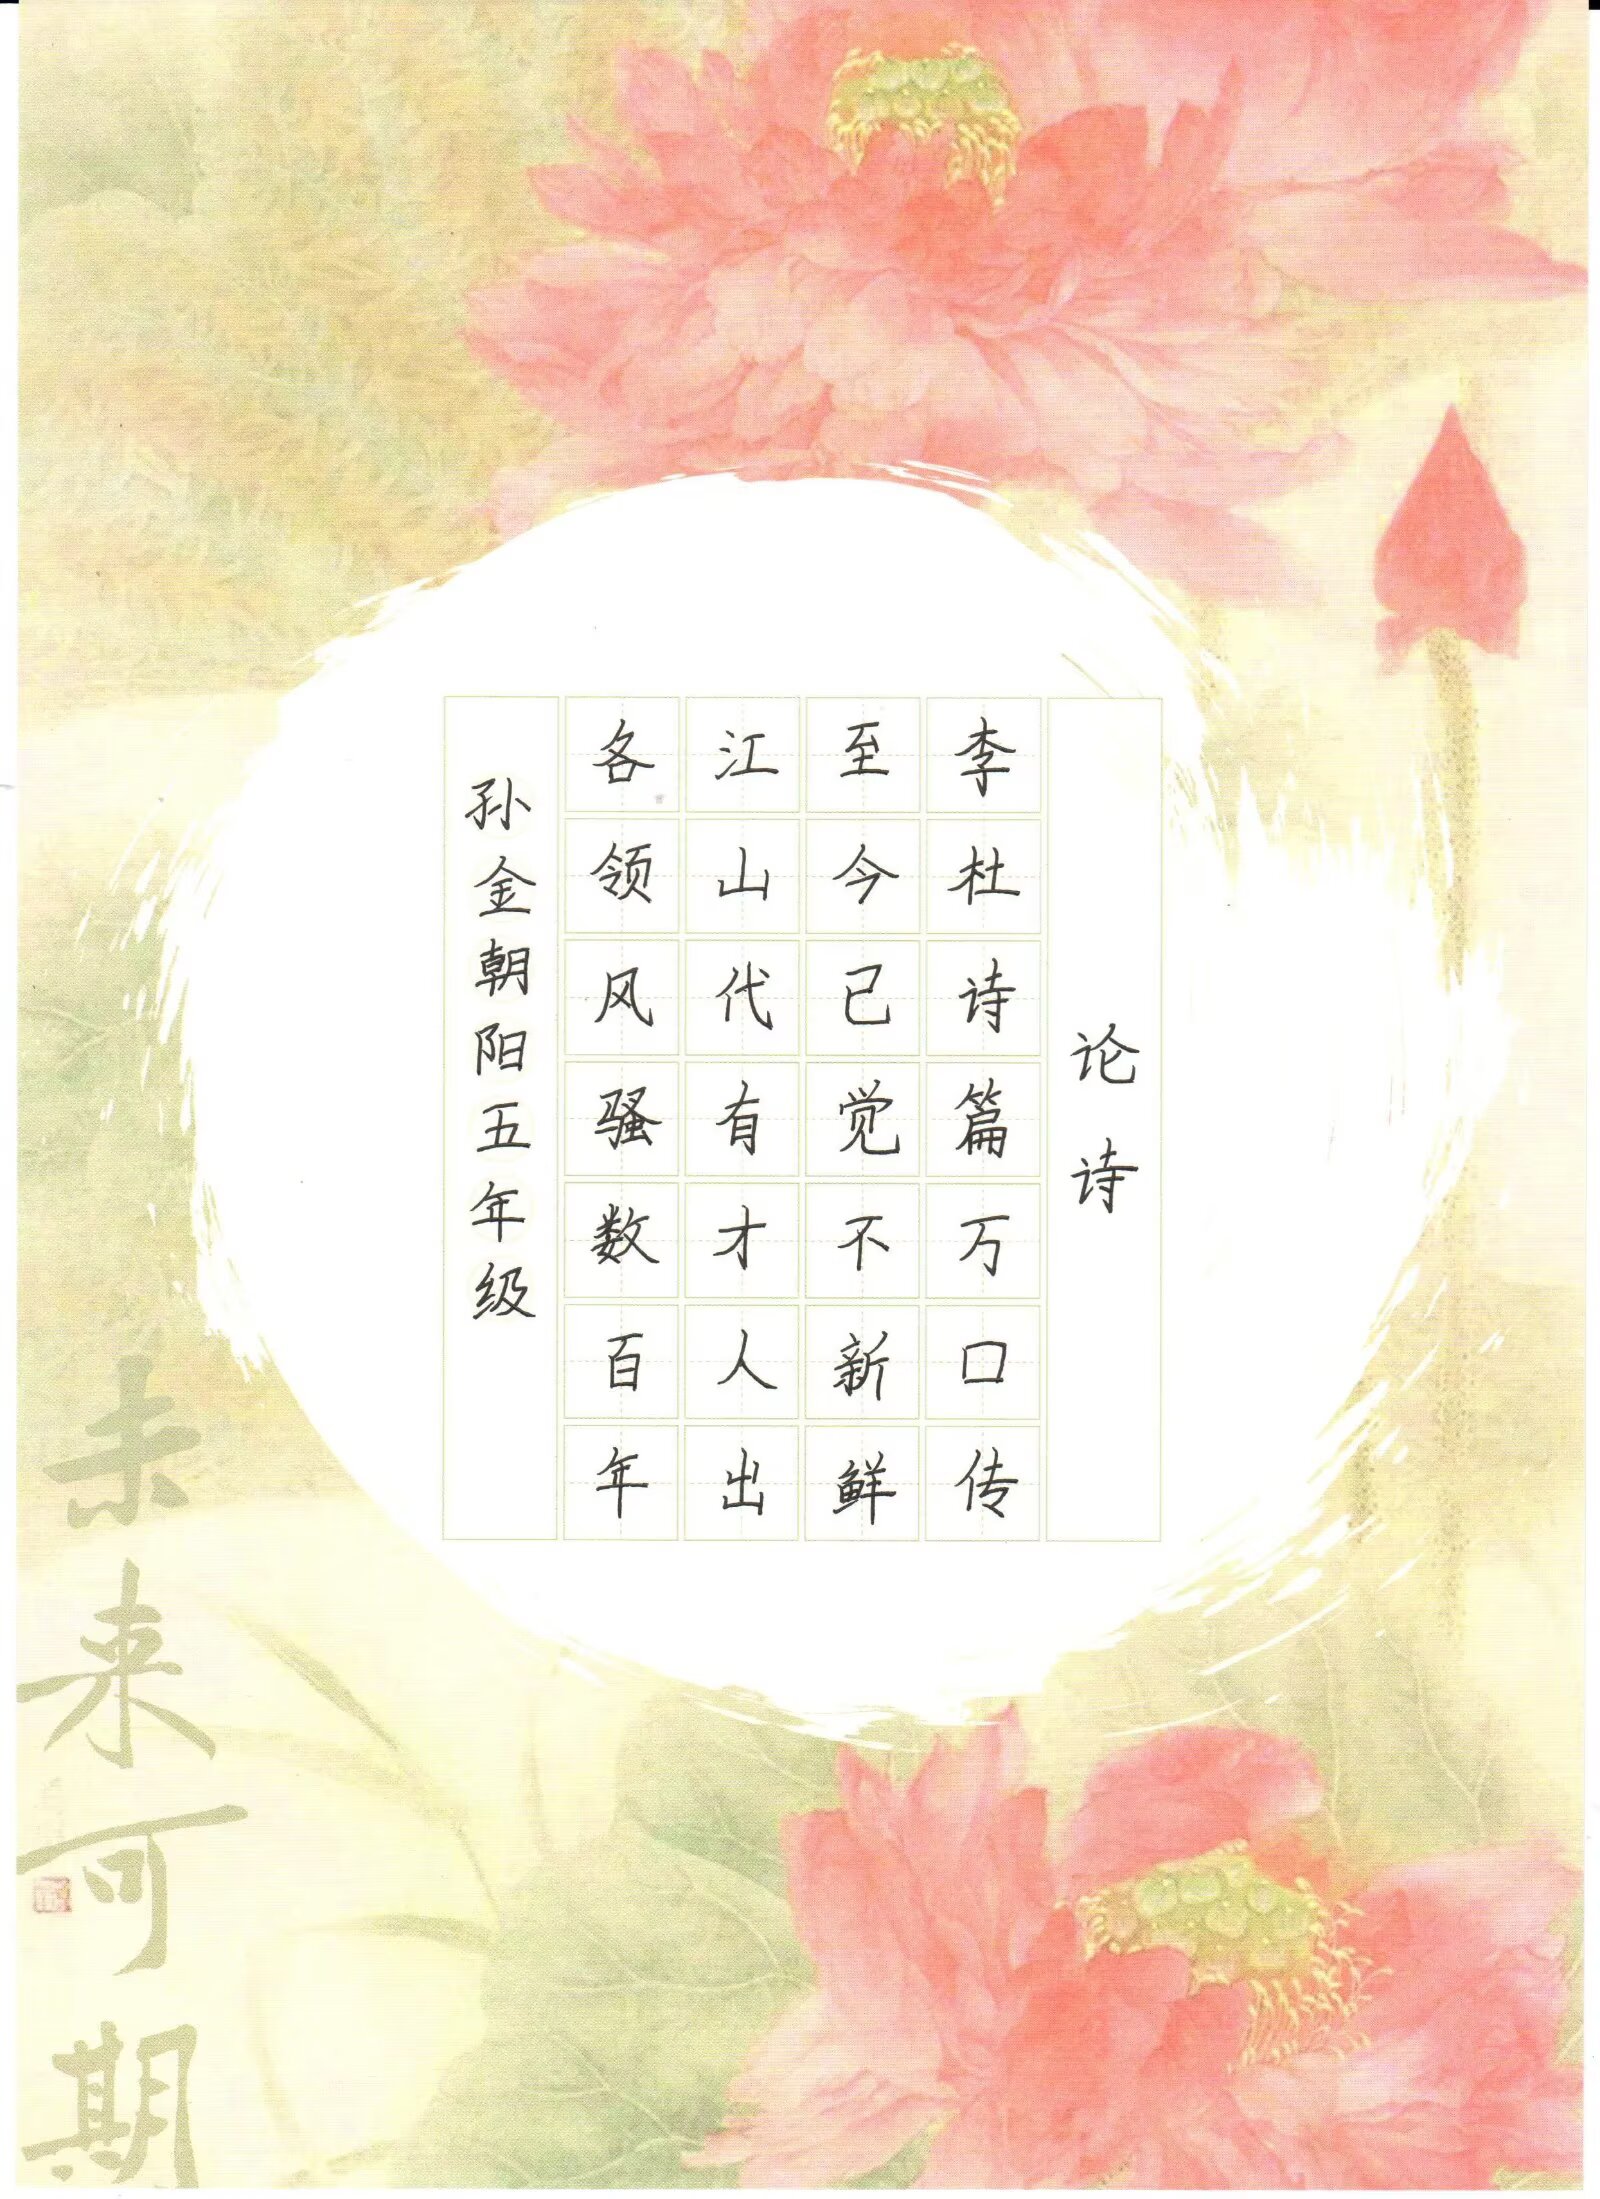 论诗
李杜诗篇万口传
至今已觉不新鲜
江山代有才人出
各领风骚数百年
孙金朝阳五年级
未来可期